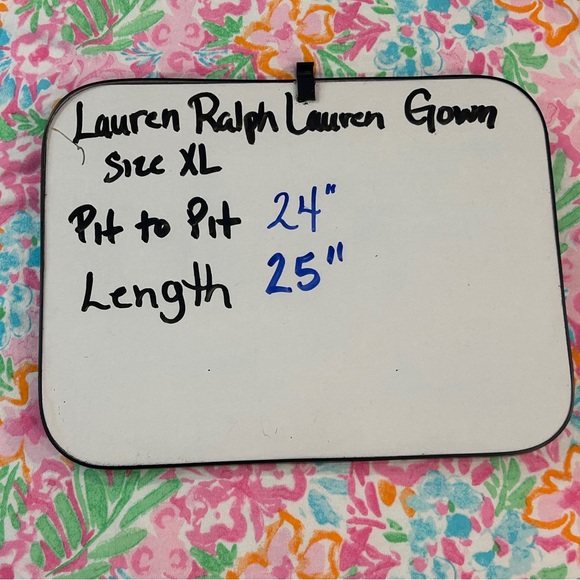 Lauren Ralph Lauren Gown
Size XL
Pit to Pit 24"
Length 25"